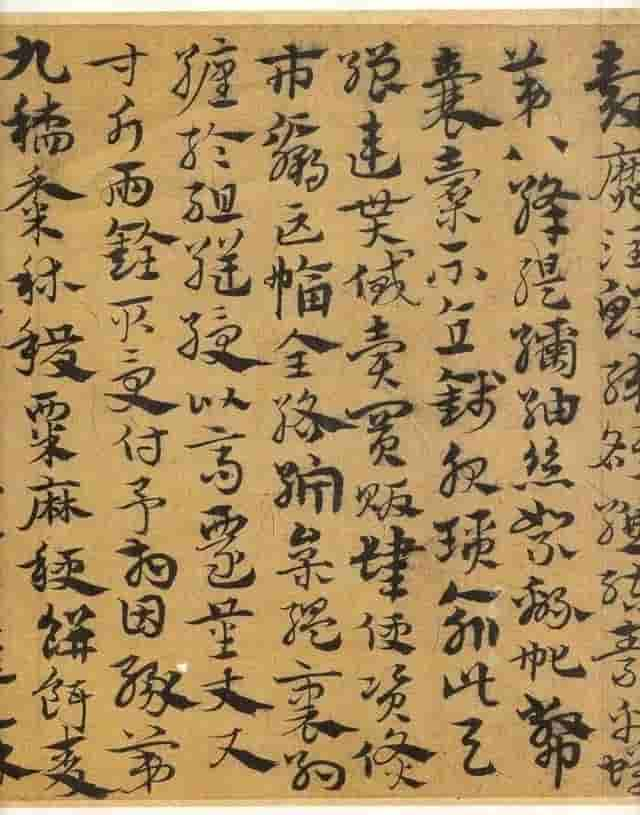 縠靡潤鮮綈絡縑練素帛蟬
第八絳緹繭紬絲絮綿帊幣
囊橐不直錢服瑣俞此與
繒連貰貸賣買販肆便資貨
市贏匹幅全綌紵枲縕裹約
纏綸組縌綬以高遷量丈尺
寸斤兩銓取受付予相因緣第
九稻黍秫稷粟麻秔餅餌麥